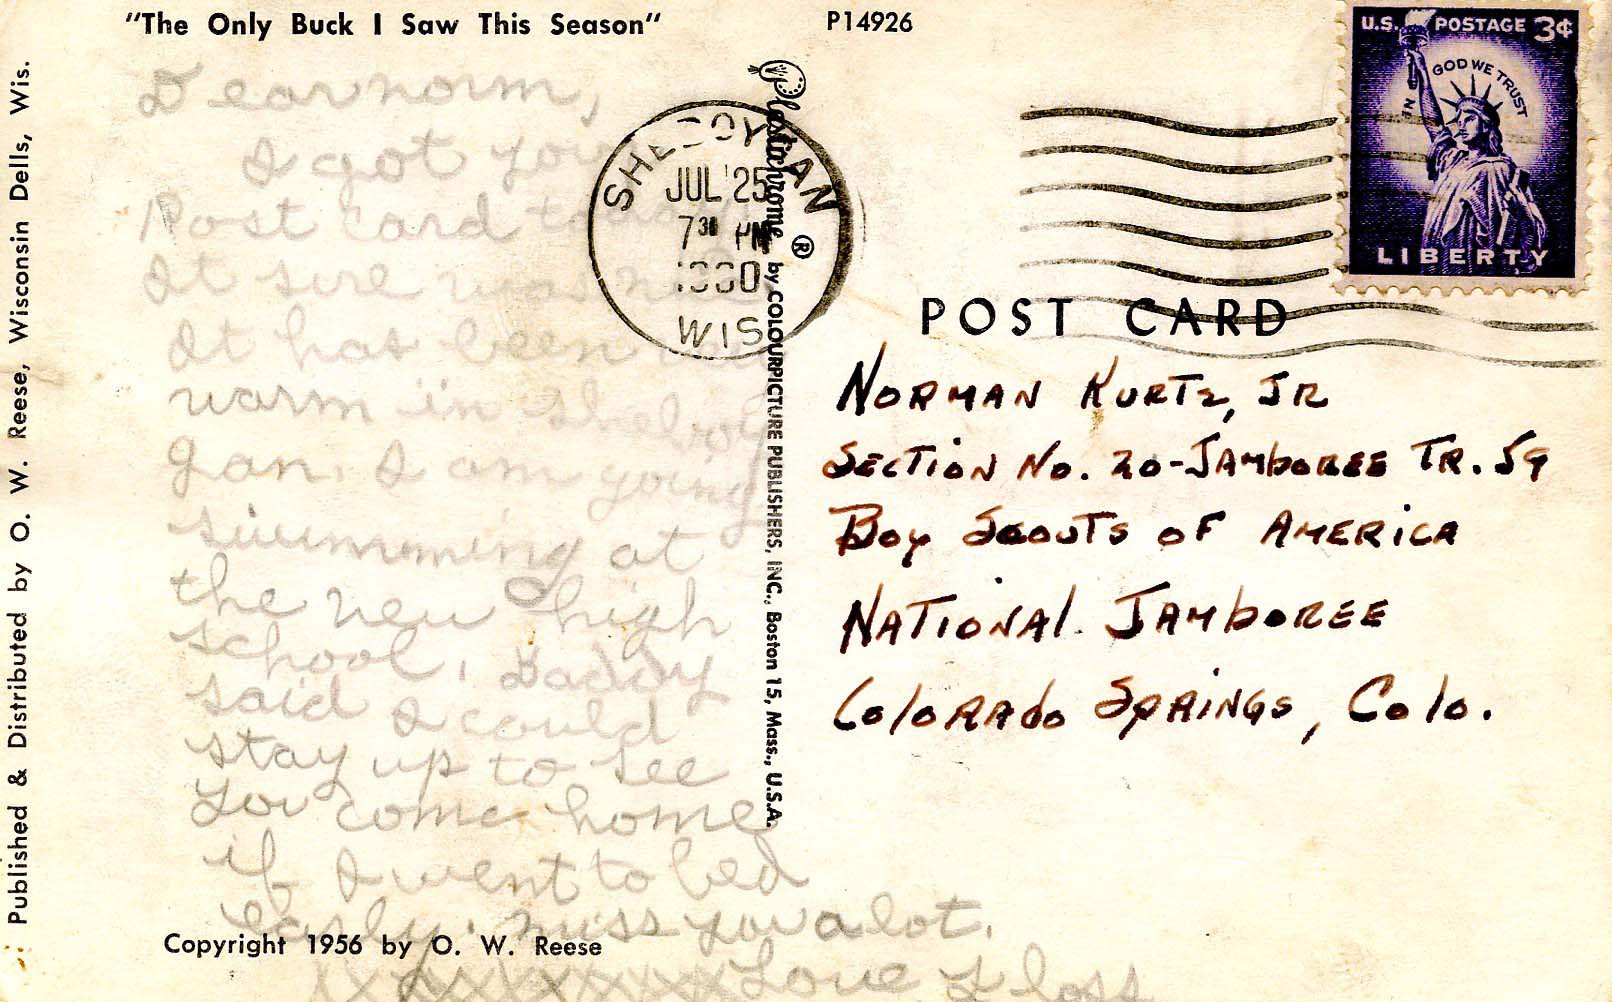 "The Only Buck I Saw This Season"
P14926
U.S. POSTAGE 3¢
IN GOD WE TRUST
LIBERTY
JUL 25
7 30 PM
WIS
POST CARD
Dear norm,
I got you
Post card
It sure was
It has been
warm in sheboy
gan. I am going
swimming at
the new high
school. Daddy
said I could
stay up to see
you come home
if I went to bed
early. miss you a lot.
Love
NORMAN KURTZ, JR
SECTION No. 20-JAMBOREE TR. 59
BOY SCOUTS OF AMERICA
NATIONAL JAMBOREE
COLORADO SPRINGS, COLO.
Plastichrome ® by COLOURPICTURE PUBLISHERS, INC., Boston 15, Mass., U.S.A.
Published & Distributed by O. W. Reese, Wisconsin Dells, Wis.
Copyright 1956 by O. W. Reese